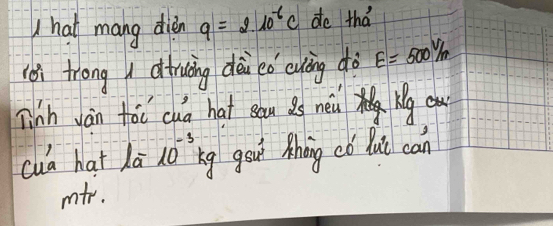 1 hạt mang điện q = 2 10⁻⁶C đc thả
rơi trong 1 đtrường đều có cường độ E = 500 V/m
Tính vận tốc của hạt sau 2s nếu klg
của hạt là 10⁻³ kg gsử không có lực cản
mtr.